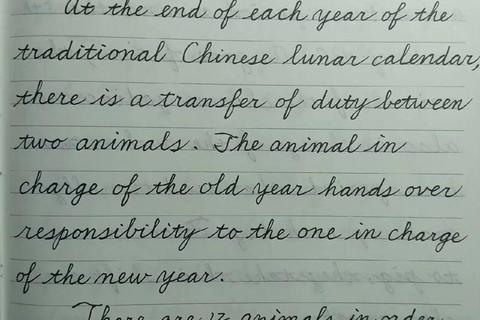 At the end of each year of the
traditional Chinese lunar calendar,
there is a transfer of duty between
two animals. The animal in
charge of the old year hands over
responsibility to the one in charge
of the new year.
There are 12 animals in order